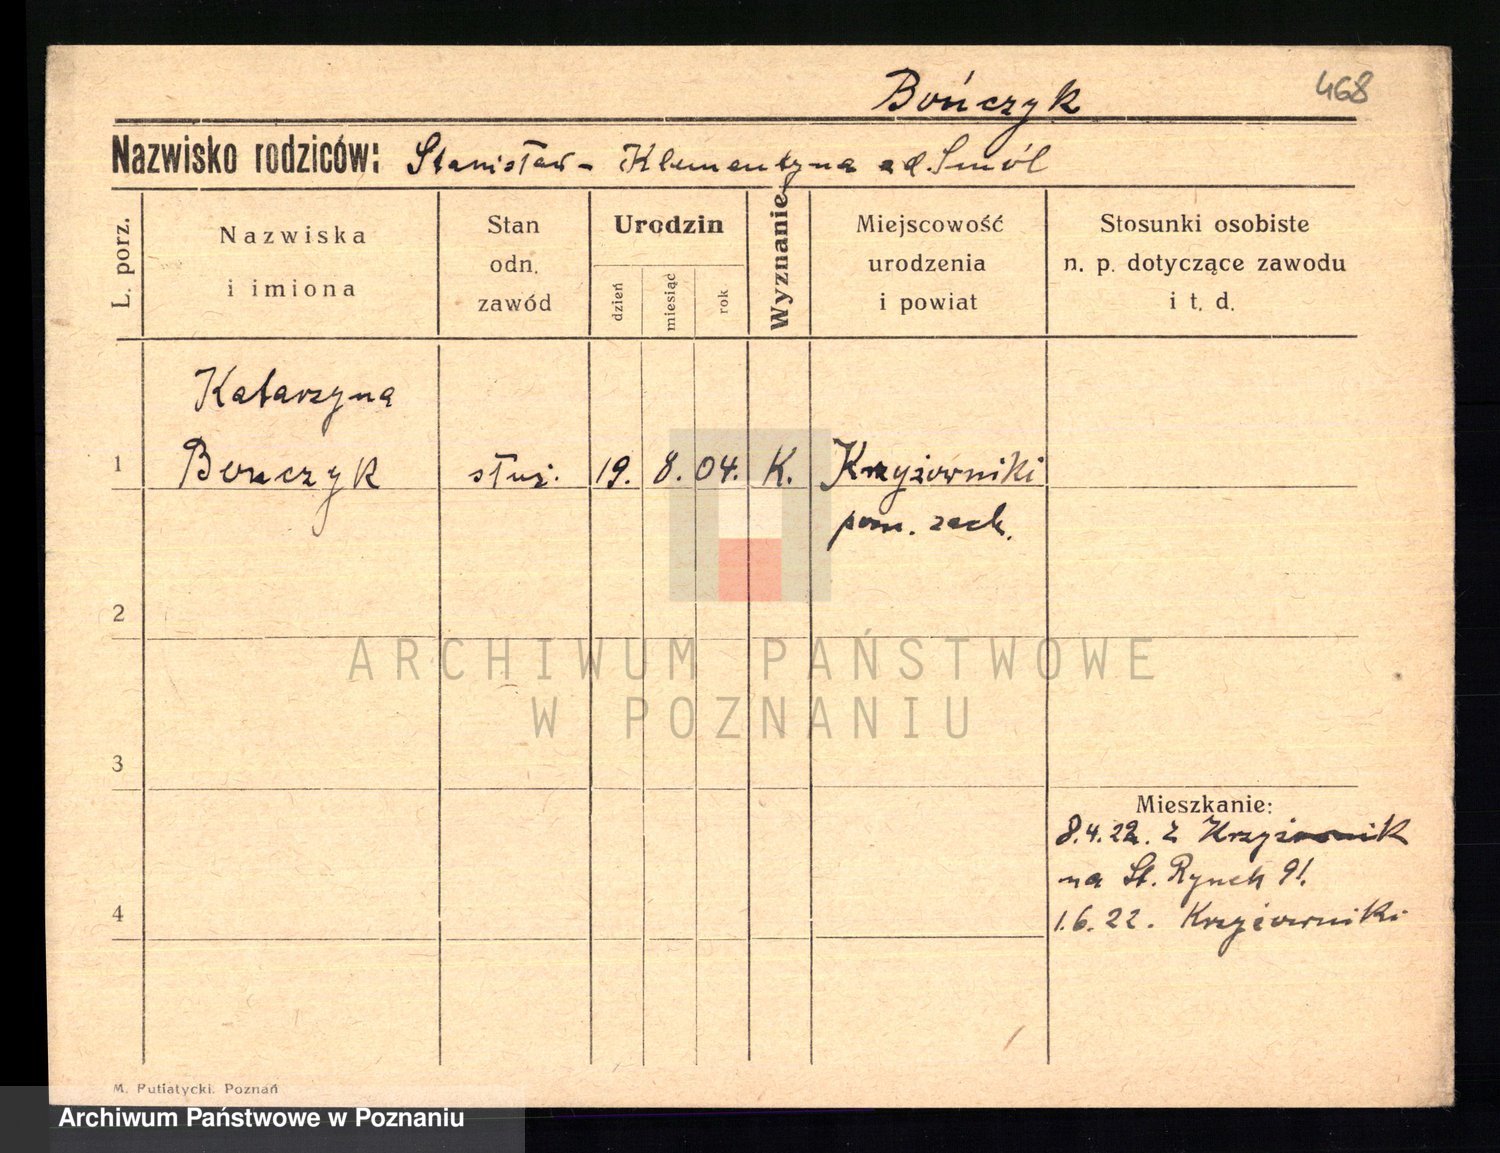 Bończyk
468
Nazwisko rodziców: Stanisław - Klementyna od. Smól
L. porz.
Nazwiska
i imiona
Stan
odn.
zawód
Urodzin
dzień
miesiąc
rok
Wyznanie
Miejscowość
urodzenia
i powiat
Stosunki osobiste
n. p. dotyczące zawodu
i t. d.
Katarzyna
1 Bonczyk służ. 19. 8. 04. K. Krzyżowniki
pozn. zach.
2
ARCHIWUM PAŃSTWOWE
W POZNANIU
3
Mieszkanie:
8.4.22. z Krzyżownik
na St. Rynek 91.
4
1.6.22. Krzyżowniki
M. Putiatycki. Poznań
Archiwum Państwowe w Poznaniu